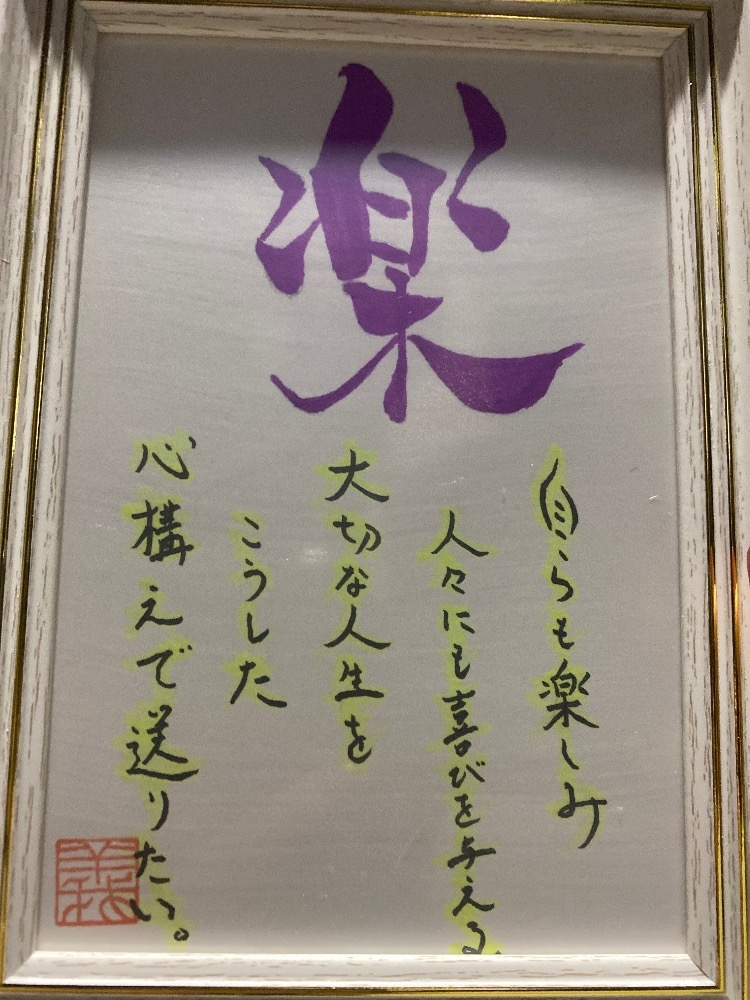 楽
自らも楽しみ
人々にも喜びを与える
大切な人生を
こうした
心構えで送りたい。